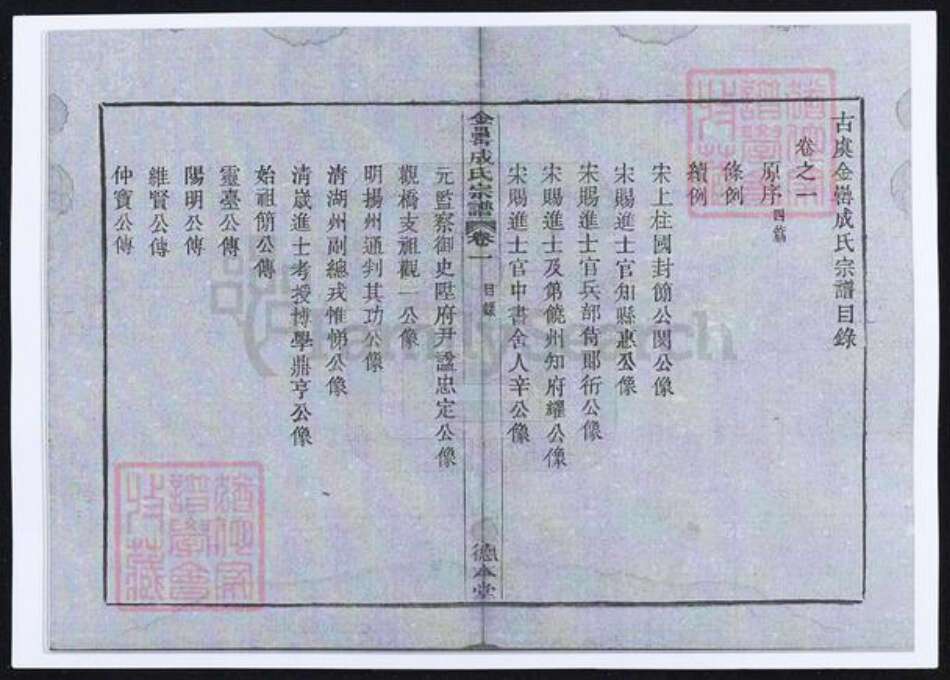 古虞金罍成氏宗譜目錄
卷之一
原序 四篇
條例
續例
宋上柱國封簡公閔公像
宋賜進士官知縣惠公像
宋賜進士官兵部尙郞衎公像
宋賜進士及第饒州知府耀公像
宋賜進士官中書舍人辛公像
金罍成氏宗譜 卷一 目錄 德本堂
元監察御史陞府尹諡忠定公像
觀橋支祖觀一公像
明揚州通判其功公像
清湖州副總戎惟悌公像
清歲進士考授博學鼎亨公像
始祖簡公傳
靈臺公傳
陽明公傳
維賢公傳
仲寶公傳
FamilySearch